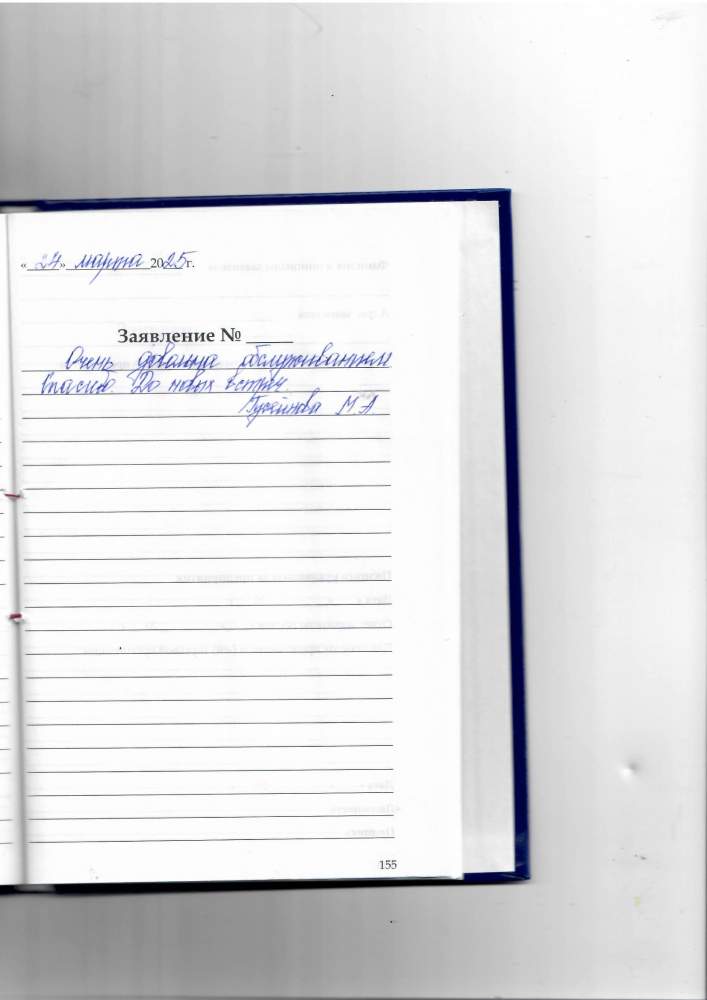 «27» марта 2025г.
Заявление №
Очень довольна обслуживанием
Спасибо. До новых встреч.
Гусейнова М А
155